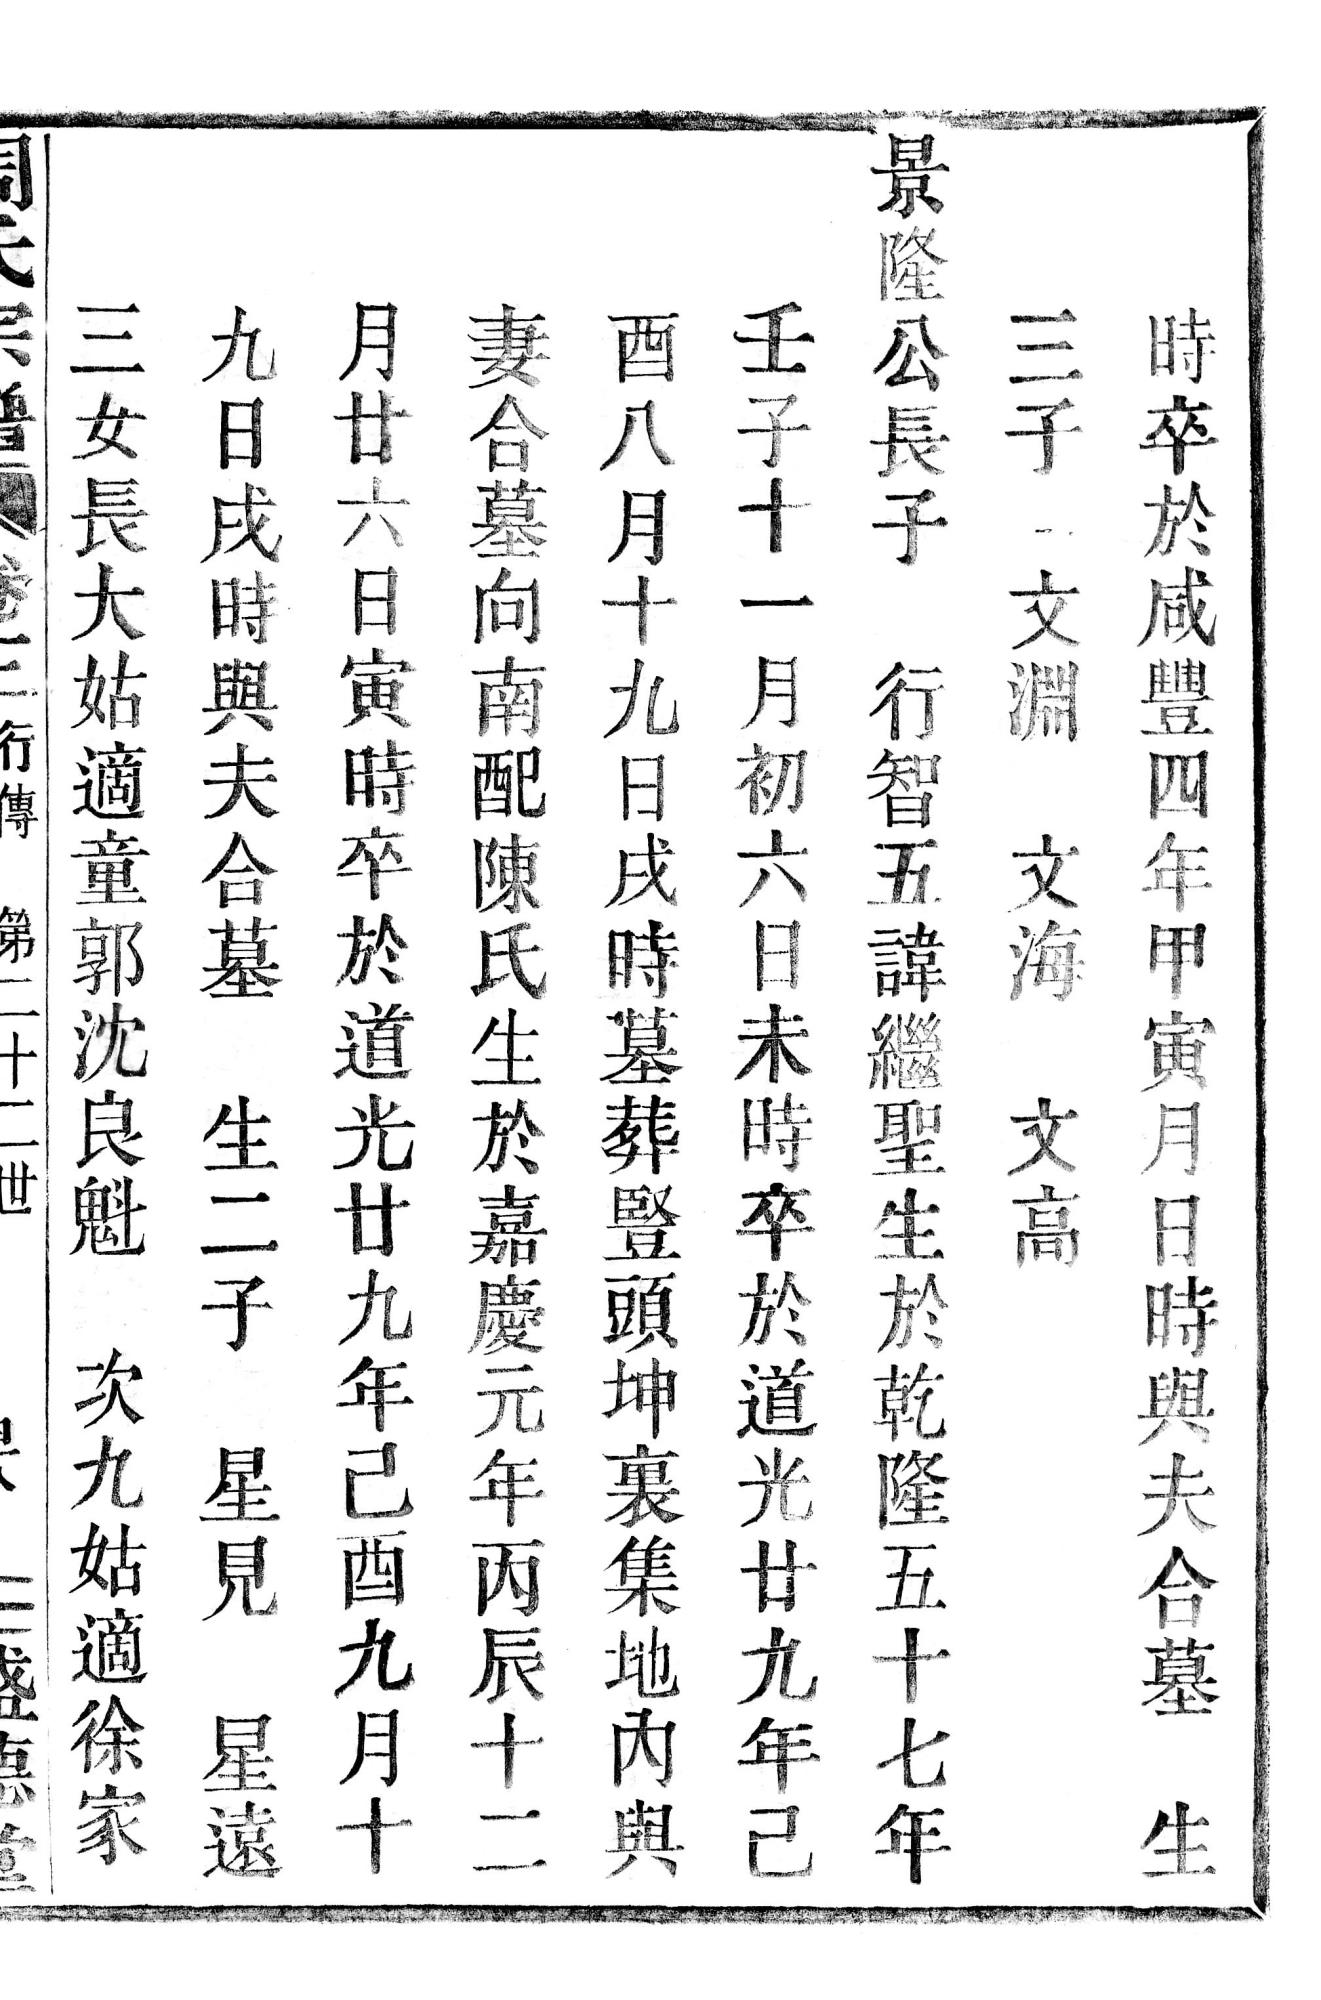 時卒於咸豐四年甲寅月日時與夫合墓　生
三子　文淵　文海　文高
景隆公長子　行智五諱繼聖生於乾隆五十七年
壬子十一月初六日未時卒於道光廿九年己
酉八月十九日戌時墓葬豎頭坤裏集地內與
妻合墓向南配陳氏生於嘉慶元年丙辰十二
月廿六日寅時卒於道光廿九年己酉九月十
九日戌時與夫合墓　生二子　星見　星遠
三女長大姑適童郭沈良魁　次九姑適徐家
周氏宗譜　卷二行傳　第二十二世　盛德堂